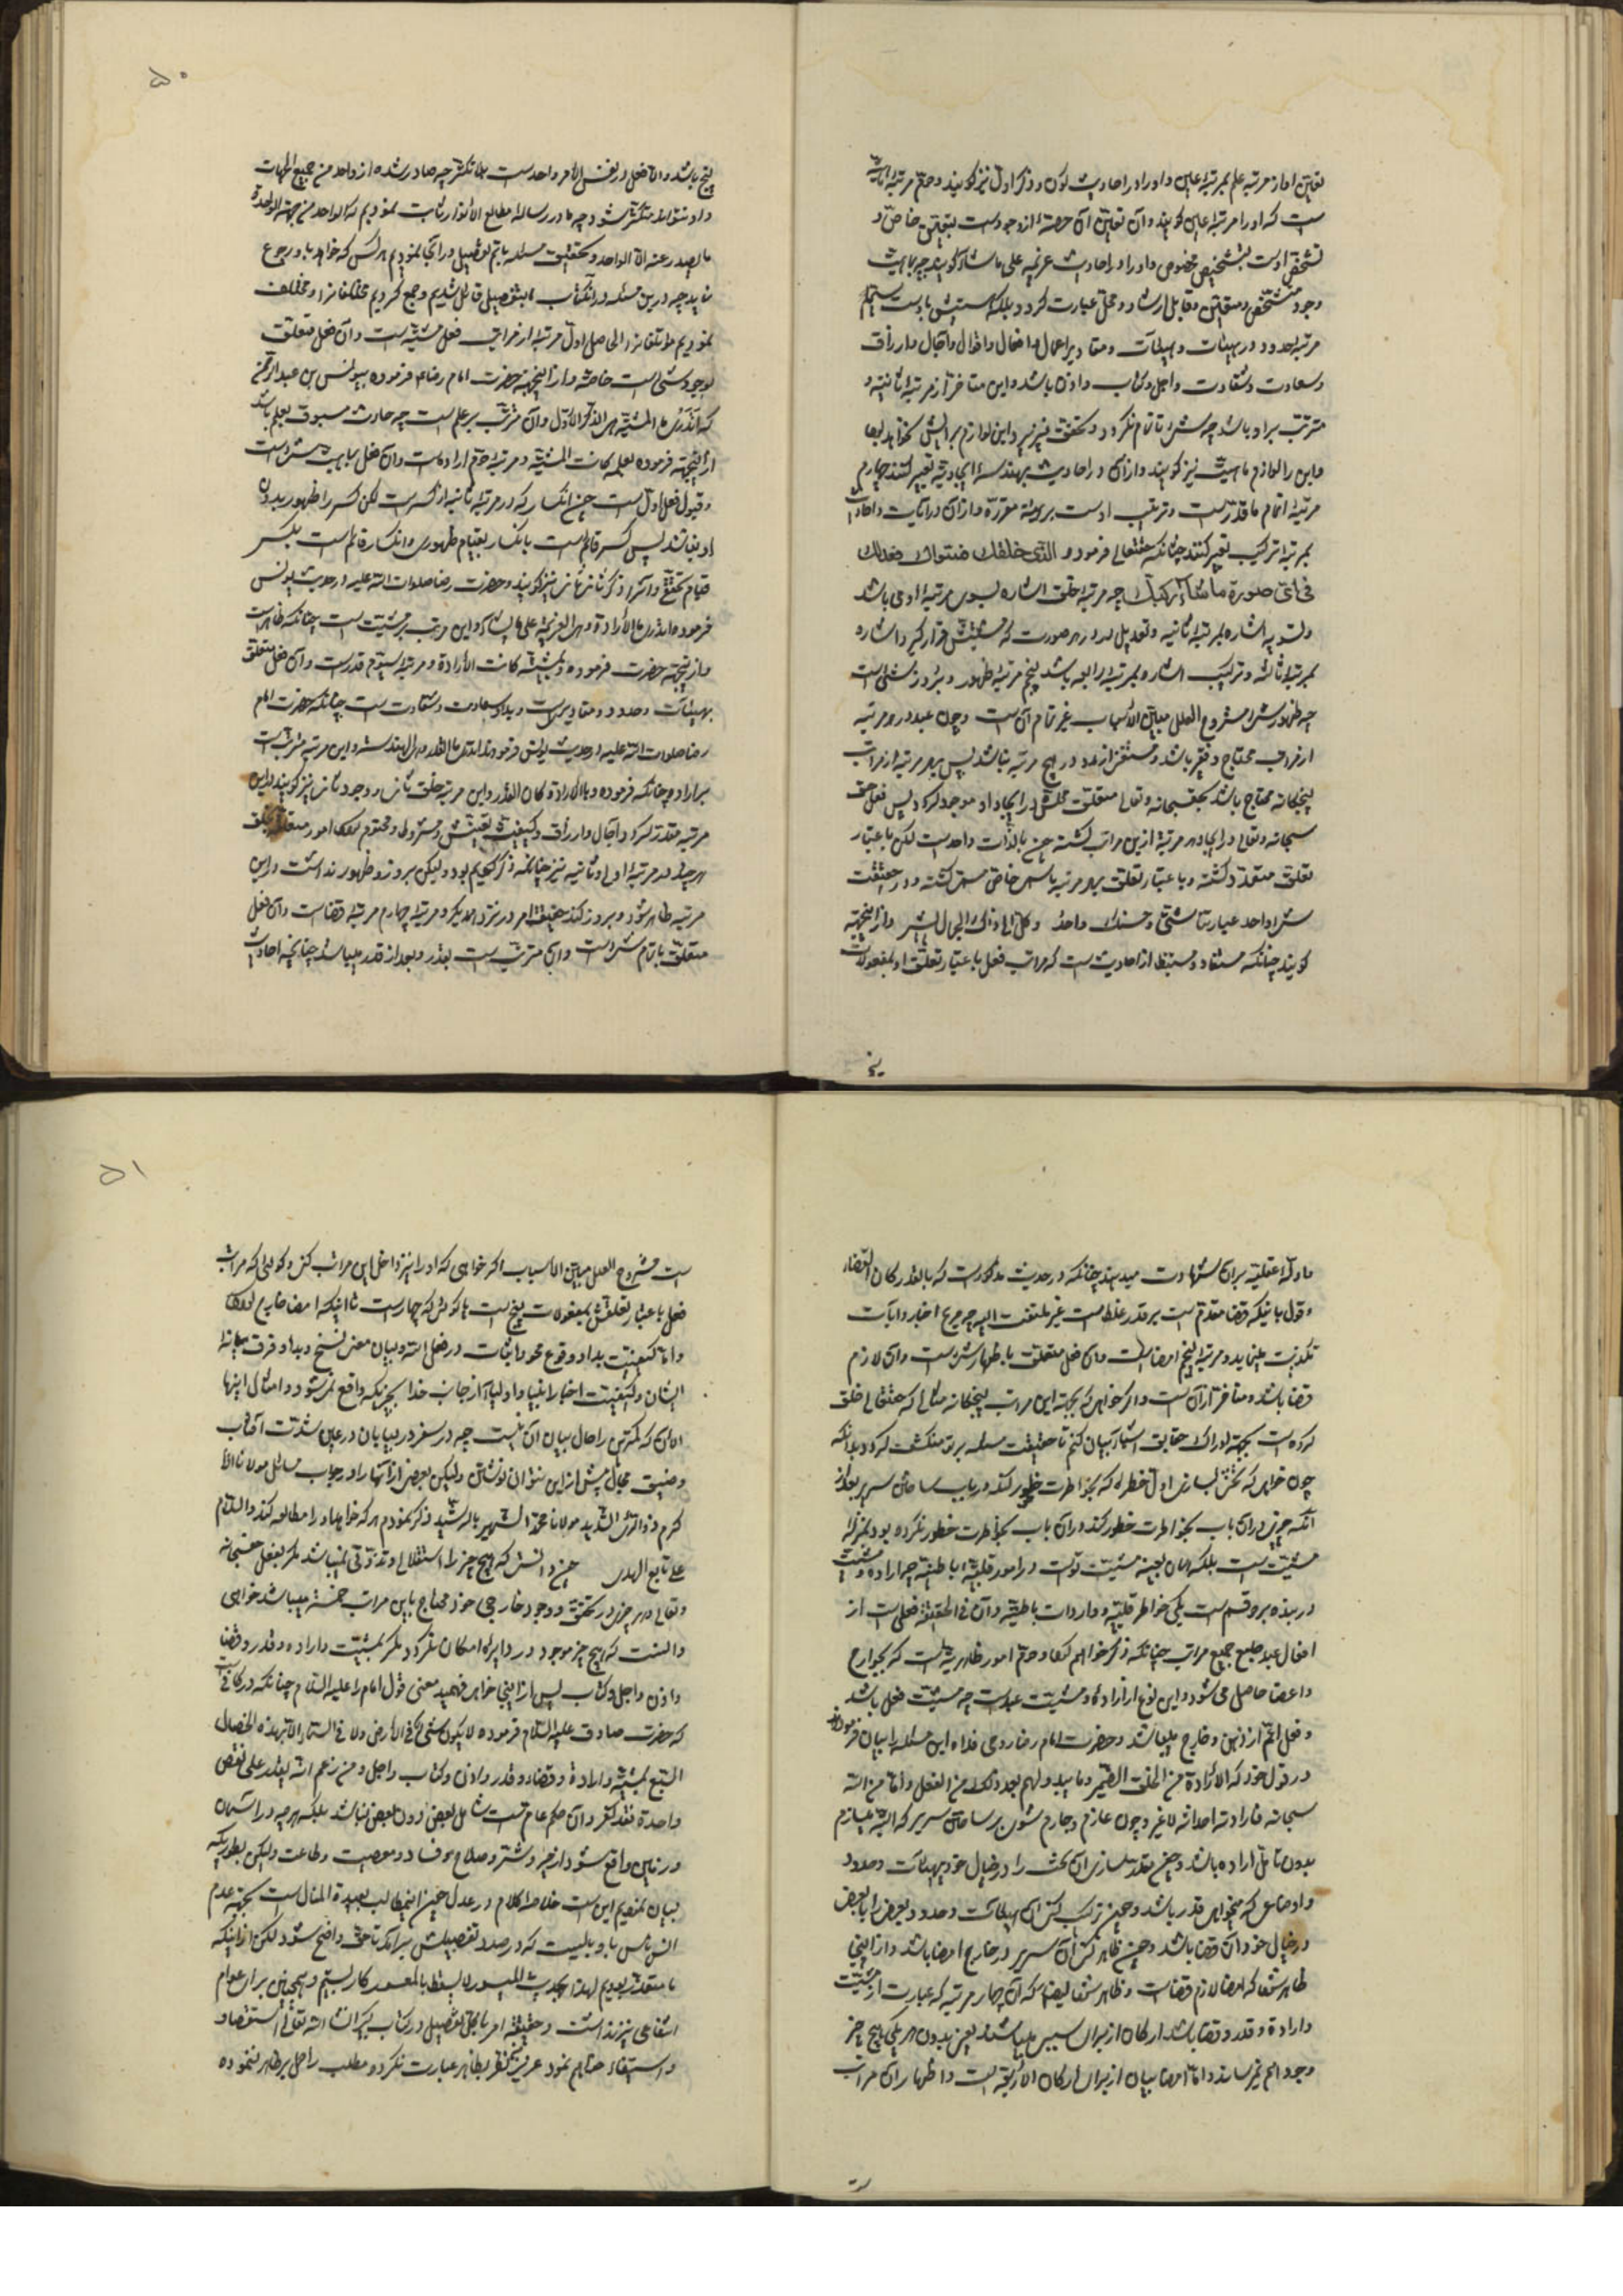 تعین او از مرتبه علم بمرتبه عین و او را در احادیث کون و ذکر اول نیز کویند و دوم مرتبه
ست که او را مرتبه عین کویند و آن تعین آن حصهٔ از وجودست بتعین خاص و
تشخص اوست بتشخص مخصوص و او را در احادیث عزیمه علی ما یشاء کویند چه ماهیت
وجود متشخص و متعین و قابل ارشاد و محل عبارت کردد
مرتبه حدود و هیئات و مقادیر اعمال و افعال و اقوال و آجال و ارزاق
و سعادت و شقاوت و اجل و کتاب و اذن باشد و این متأخر از مرتبه ثانیه و
مترتب بر او باشد چه شیء تا تمام نکردد و تحقق نپذیرد این لوازم برایش نخواهد بود
و این را لوازم ماهیت نیز کویند و از آن در احادیث بهندسه ایجادیه تعبیر کنند چهارم
مرتبهٔ اتمام ما قدّرست و ترتیب اوست بر هیئة مقرره و از آن در آیات و احادیث
بمرتبه ترکیب تعبیر کنند چنانکه حقتعالی فرموده الذی خلقک فسوّاک فعدلک
فی ای صورة ما شاء رکبک چه مرتبه خلق اشاره بسوی مرتبه اولی باشد
و تسویه اشاره بمرتبه ثانیه و تعدیل در هر صورت که مشیتش قرار کیرد اشاره
بمرتبه ثالثه و ترکیب اشاره بمرتبه رابعه باشد پنجم مرتبه ظهور و بروز شیء است
چه ظهور شیء مشروح العلل مبین الأسباب غیر تمام آن ست و چون عبد در هر مرتبه
از مراتب محتاج و فقیر باشد و مستغنی از مدد در هیچ مرتبه نباشد پس در هر مرتبه از مراتب
پنجکانه محتاج باشد بحق سبحانه و تعالی
سبحانه و تعالی در ایجاد هر مرتبهٔ ازین مراتب کشته چون بالذات واحدست لکن باعتبار
تعلق متعدد کشته و باعتبار تعلق بهر مرتبه باسم خاص مسمی کشته و در حقیقت
شیء واحد عباراتنا شتی و حسنک واحد و کل الی ذاک الجمال یشیر و از اینجهة
کویند چنانکه مستفاد و مستنبط از احادیث ست که مراتب فعل باعتبار تعلق او بمفعولات
پنج
۵۰
پنج باشد و اما فعل در نفس الأمر واحدست بلا تکثر چه صادر شده از واحد من جمیع الجهات
و او نتواند متکثر شود چه ما در رساله مطالع الأنوار اثبات نمودیم که الواحد من جهة الواحدة
ما یصدر عنه الا الواحد و تحقیق مسئله باتم تفصیل در آنجا نمودیم هر کس که خواهد باو رجوع
نماید چه درین مسئله در آنکتاب بتفصیل قائل شدیم و جمع کردیم مختلفا نرا و مختلف
نمودیم مؤتلفا نرا الحاصل اول مرتبه از مراتب فعل مشیت ست و آن فعل متعلق
بوجود شیء است خاصة و از اینجهة حضرت امام رضا فرموده بیونس بن عبدالرحمن
که اتدری ما المشیّة هی الذکر الأول و آن مترتب بر علم ست چه حادث مسبوق بعلم باشد
از اینجهة فرموده بعلمه کانت المشیّة و مرتبه دوم اراده است و آن فعل بماهیت شیء است
و قبول فعل اول ست چون انکسار که در مرتبه ثانیه از کسر ست لکن کسر را ظهور بدون
او نباشد پس کسر قائم است بانکسار بقیام ظهوری و انکسار قائم است بکسر
قیام تحقق و او را ذکر ثانی نیز کویند و حضرت رضا صلوات الله علیه در حدیث یونس
فرموده اتدری ما الأرادة هی العزیمة علی ما یشاء و این مرتب بر مشیت ست چنانکه ظاهرست
و از اینجهة حضرت فرموده و بمشیته کانت الأرادة و مرتبه سیم قدرست و آن فعل متعلق
بهیئات و حدود و مقادیرست و مبدأ سعادت و شقاوت ست چنانکه حضرت امام
رضا صلوات الله علیه در حدیث یونس فرموده اتدری ما القدر هی الهندسة و این مرتبه مترتب
بر اراده چنانکه فرموده و بالأرادة کان القدر و این مرتبه خلق ثانی و وجود ثانی نیز کویند
مرتبه مقدر کردد آجال و ارزاق و کیفیت تعیش و محتوم امور متعلقه بخلق
هر چند در مرتبه اولی و ثانیه نیز چنانکه ذکر کنیم بود ولیکن بروز و ظهور نداشت در این
مرتبه ظاهر شود و بروز کند حقیقت امر در نزد یکدیکر و مرتبه چهارم مرتبه قضاست و آن فعل
متعلق باتمام شیء است و این مترتب ست بقدر و بعد از قدر میباشد چنانچه احادیث
و ادلّهٔ عقلیه بر آن شهادت میدهند چنانکه در حدیث مذکورست که بالقدر کان القضاء
و قول باینکه قضا مقدم ست بر قدر غلط ست غیر ملتفت الیه چه صریح اخبار و آیات
تکذیب مینماید و مرتبه پنجم امضاست و آن فعل متعلق باظهار شیء ست و آن لازم
قضا باشد و متأخر از آن ست و اکر خواهی که بجهة این مراتب پنجکانه مثالی که حقتعالی خلق
کرده ست بجهة ادراک حقایق اشیاء بیان کنم تا حقیقت مسئله بر تو منکشف کردد بدانکه
چون خواهی که تختی بسازی اول خطره که بخاطرت خطور کند در باب ساختن سریر بعد از
آنکه چیزی در آن باب بخاطرت خطور کند در آن باب بخاطرت خطور نکرده بود بمنزلهٔ
مشیت ست بلکه همان بعینه مشیت توست در امور قلبیّه باطنیه چه اراده و مشیت
در بنده بر دو قسم ست یکی خواطر قلبیه و واردات باطنیه و آن فی الحقیقة فعلی ست از
افعال عبد جامع جمیع مراتب چنانکه ذکر خواهم کرد و دوم امور ظاهریه است که بجوارح
و اعضا حاصل می شود و این نوع از اراده و مشیت عبدست چه مشیت فعل باشد
و فعل اعم از ذهن و خارج میباشد و حضرت امام رضا روحی فداه این مسئله را بیان فرموده
در قول خود که الأرادة من الخلق الضمیر و ما یبدو لهم بعد ذلک من الفعل و اما من الله
سبحانه فارادته احداثه لا غیر و چون عازم و جازم شوی بر ساختن سریر که البته میسازم
بدون تأمل اراده باشد و چون مقدر سازی آن تخت را در خیال خود بهیئات و حدود
و اوضاعی که میخواهی قدر باشد و چون ترکیب کنی آن هیئات و حدود بعض را ببعض
در خیال خود آن قضا باشد و چون ظاهر کنی آن سریر در خارج امضا باشد و از اینجا
ظاهر شد که امضا لازم قضاست و ظاهر شد ایضا که آن چهار مرتبه که عبارت از مشیت
و ارادة و قدر و قضا باشد ارکان از برای سریر میباشند یعنی بدون هر یکی هیچ چیز
وجود بهم نمیرساند و اما امضا بیان از برای ارکان الأربعة است و اظهار آن مراتب
۵۱
ست مشروح العلل مبین الأسباب اکر خواهی که او را نیز داخل این مراتب کنی و کوئی که مراتب
فعل باعتبار تعلقش بمفعولات پنج ست یا کوئی که چهارست با اینکه امضا خارج
و اما کیفیت بداء و وقوع محو و اثبات در فعل الله و بیان معنی نسخ و بدا و فرق میانه
ایشان و کیفیت اخبار انبیا و اولیا از جانب خدا بچیزیکه واقع نمیشود و امثال اینها
الان که کمترین را حال بیان آن نیست چه در سفر در بیابان در عین شدت آفتاب
و ضیق مجال بیش از این نتوان نوشتن ولیکن بعضی از آنها را در جواب مسائل مولانا الأ
کرم ذو الرأی السدید مولانا محمد الشهیر بالرشید ذکر نمودم هر که خواهد او را مطالعه کند و السلام
علی تابع الهدی چون دانستی که هیچ چیز را استقلال و تذوتی نمیباشد مکر بفعل حق سبحانه
و تعالی و هر چیزی در تحقق و وجود خارجی خود محتاج باین مراتب خمسه میباشد خواهی
دانست که هیچ چیز موجود در دایرهٔ امکان نکردد مکر بمشیت و اراده و قدر و قضا
و اذن و اجل و کتاب پس از اینجا خواهی فهمید معنی قول امام را علیه السلام چنانکه در کافی ست
که حضرت صادق علیه السلام فرموده لا یکون شیء فی الأرض و لا فی السماء الا بهذه الخصال
السبع بمشیّة و ارادة و قضاء و قدر و اذن و کتاب و اجل و من زعم انه یقدر علی نقض
واحدة فقد کفر و آن حکم عام ست شامل بعض دون بعض نباشد بلکه هر چه در آسمان
و زمین واقع شود از خیر و شر و صلاح و فساد و معصیت و طاعت ولیکن بطوریکه
بیان نمودیم این ست خلاصه کلام در عدل چون این مطالب بعیدة المنال ست بجهة عدم
انس ناس باو بایست که در صدد تفصیلش برآیم تا حق واضح شود لکن از اینکه
ما معتذر بودیم لهذا بحدیث المیسور لا یسقط بالمعسور کار بستیم و همچنین برای عوام
انتفاعی نیز نداشت و حقیقة امر با تفصیل در کتاب دیکر ان شاء الله تعالی استقصا و
و استیفاء خواهم نمود عزیز من نظر بظاهر عبارت نکرده مطلب را حمل بر ظاهر ننموده